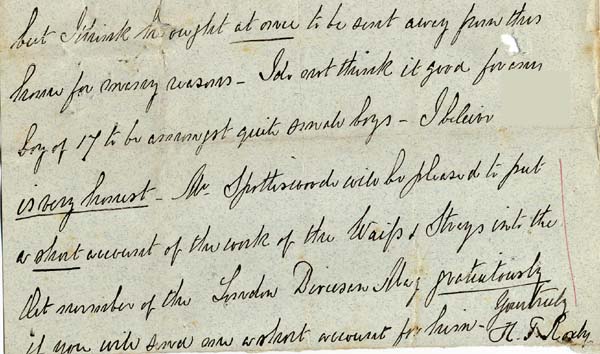 but I think he ought at once to be sent away from this
home for many reasons - I do not think it good for any
boy of 17 to be amongst quite small boys - I beleive
is very honest - Mr Spottiswoode will be pleased to put
a short account of the work of the Waifs & Strays into the
Oct number of the London Diocesan Mag gratuitously
if you will send me a short account for him -
Yours truly
H. F. Roxby